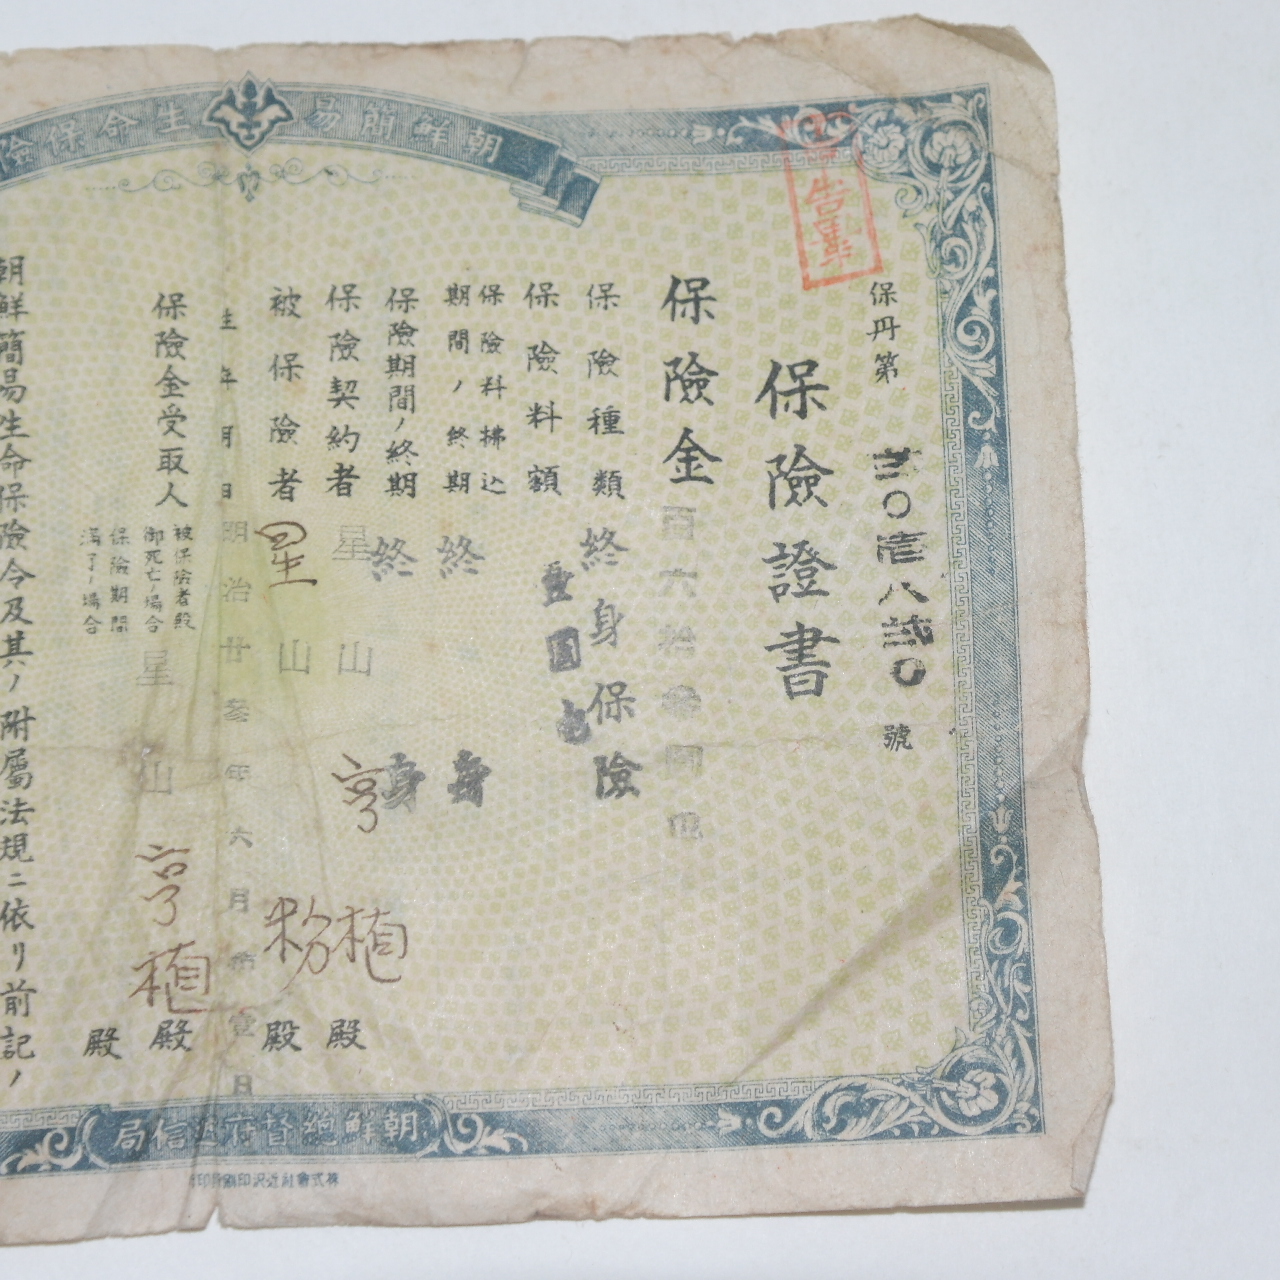 朝鮮簡易生命保險
保丹第貳〇壹八貳〇號
保險證書
保險金百六拾參圓也
保險種類終身保險
保險料額壹圓也
保險料拂込
期間ノ終期終身
保險期間ノ終期終身
保險契約者星山亨植殿
被保險者星山粉殿
生年月日明治廿參年六月壹日
保險金受取人
被保險者殿
御死亡ノ場合
星山亨植殿
保險期間
滿了ノ場合
殿
朝鮮簡易生命保險令及其ノ附屬法規ニ依リ前記ノ
朝鮮總督府遞信局